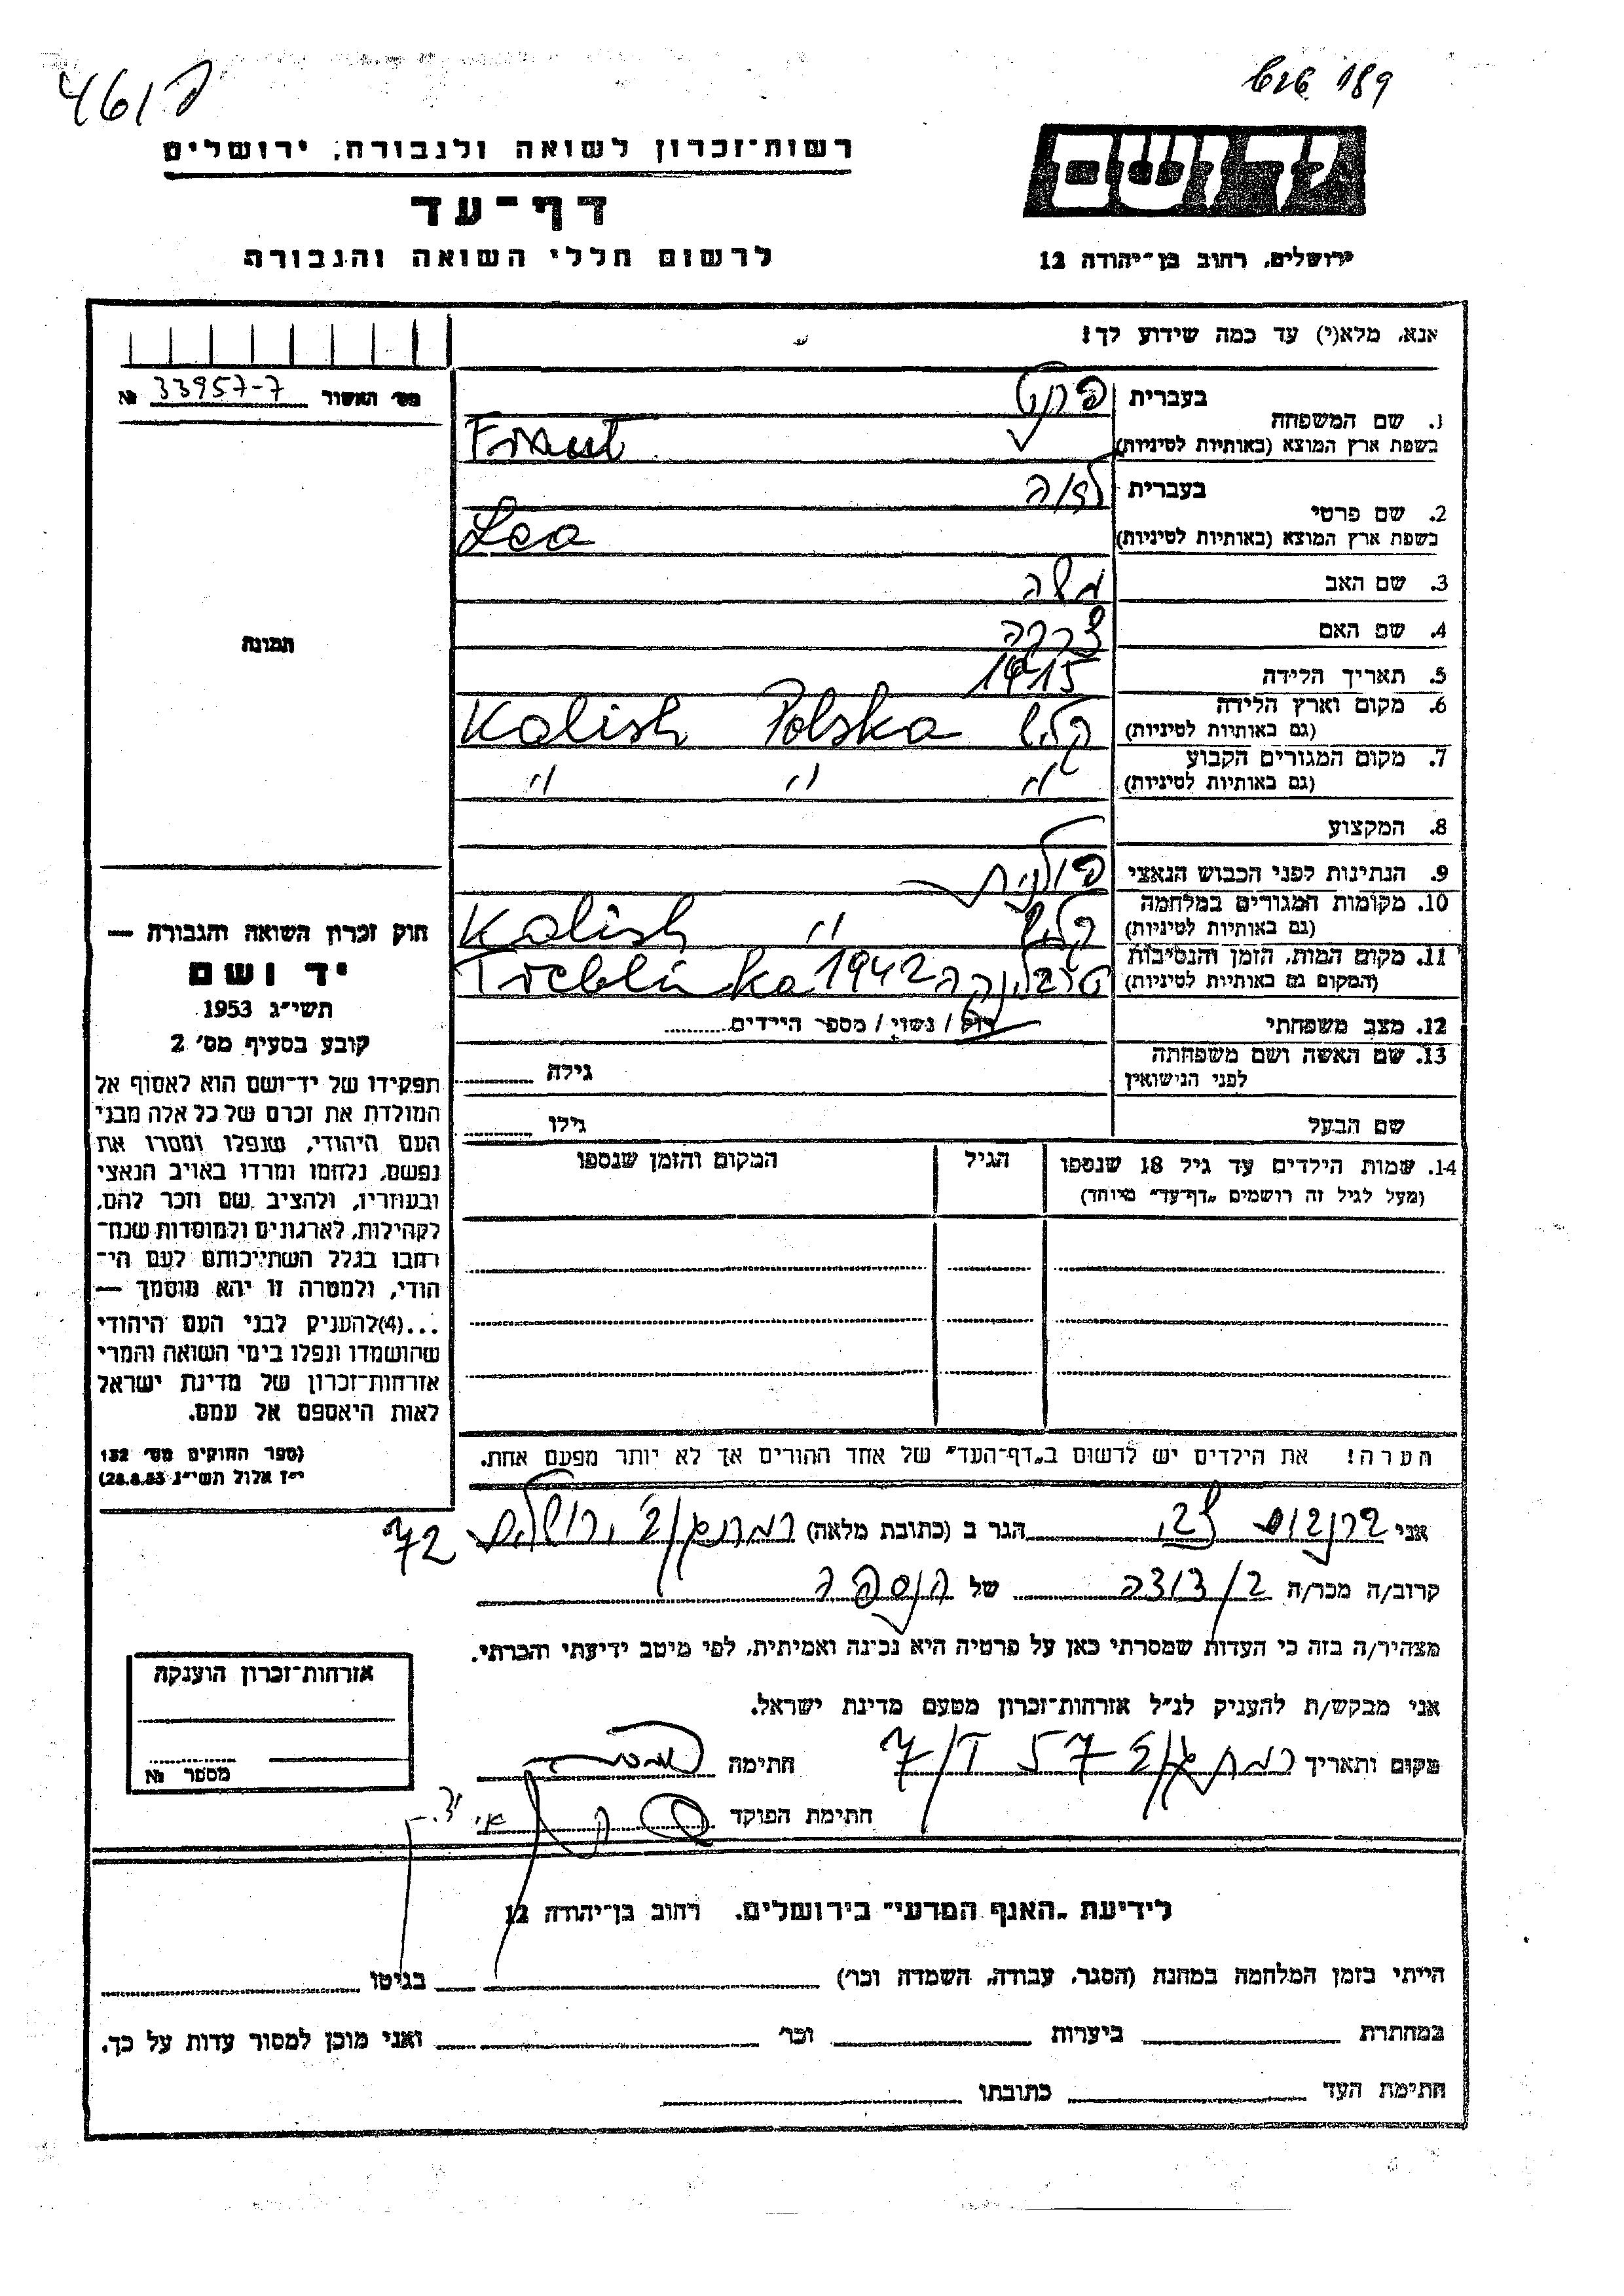 461 פ
189
רשות־זכרון לשואה ולגבורה, ירושלים
דף־עד
לרשום חללי השואה והגבורה
יד ושם
ירושלים, רחוב בן־יהודה 12
אנא, מלא(י) עד כמה שידוע לך!
מס׳ האשור 33957-7 №
תמונה
1. שם המשפחה
בעברית
בשפת ארץ המוצא (באותיות לטיניות)
2. שם פרטי
בעברית לאה
בשפת ארץ המוצא (באותיות לטיניות) Lea
3. שם האב משה
4. שם האם
5. תאריך הלידה 1915
6. מקום וארץ הלידה קליש Kalish Polska
(גם באותיות לטיניות)
7. מקום המגורים הקבוע " " "
(גם באותיות לטיניות)
8. המקצוע
9. הנתינות לפני הכבוש הנאצי פולנית
10. מקומות המגורים במלחמה קליש " Kalish
(גם באותיות לטיניות)
11. מקום המות, הזמן והנסיבות טרבלינקה 1942 Treblinka
(המקום גם באותיות לטיניות)
12. מצב משפחתי רוק / נשוי / מספר הילדים
13. שם האשה ושם משפחתה
לפני הנישואין
גילה
שם הבעל
גילו
14. שמות הילדים עד גיל 18 שנספו
(מעל לגיל זה רושמים „דף־עד” מיוחד)
הגיל
המקום והזמן שנספו
חוק זכרון השואה והגבורה —
יד ושם
תשי״ג 1953
קובע בסעיף מס׳ 2
תפקידו של יד־ושם הוא לאסוף אל
המולדת את זכרם של כל אלה מבני
העם היהודי, שנפלו ומסרו את
נפשם, נלחמו ומרדו באויב הנאצי
ובעוזריו, ולהציב שם וזכר להם,
לקהילות, לארגונים ולמוסדות שנח־
רבו בגלל השתייכותם לעם הי־
הודי, ולמטרה זו יהא מוסמך —
...(4)להעניק לבני העם היהודי
שהושמדו ונפלו בימי השואה והמרי
אזרחות־זכרון של מדינת ישראל
לאות היאספם אל עמם.
(ספר החוקים מס׳ 132
י״ז אלול תשי״ג 28.8.53)
הערה! את הילדים יש לרשום ב„דף־העד” של אחד ההורים אך לא יותר מפעם אחת.
אני הגר ב (כתובת מלאה) רמת אביב 72
קרוב/ה מכר/ה בן/דודה של הנספה
מצהיר/ה בזה כי העדות שמסרתי כאן על פרטיה היא נכונה ואמיתית, לפי מיטב ידיעתי והכרתי.
אני מבקש/ת להעניק לנ״ל אזרחות־זכרון מטעם מדינת ישראל.
מקום ותאריך רמת אביב חתימה
חתימת הפוקד
אזרחות־זכרון הוענקה
מספר №
לידיעת „האגף המדעי” בירושלים, רחוב בן־יהודה 12
הייתי בזמן המלחמה במחנה (הסגר, עבודה, השמדה וכר׳) בגיטו
במחתרת ביערות וכר׳ ואני מוכן למסור עדות על כך.
חתימת העד כתובתו